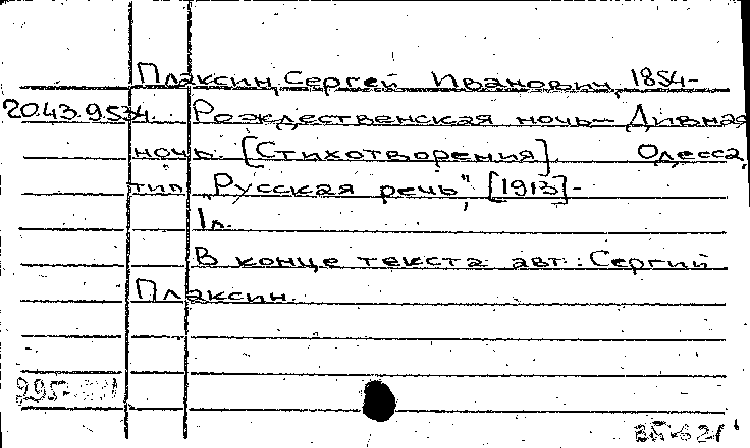 Плаксин, Сергей Иванович, 1854-
20.43.9534. Рождественская ночь.- Дивная
ночь. [Стихотворения]. Одесса,
тип. "Русская речь", [1913].-
1л.
В конце текста авт.: Сергий
Плаксин.